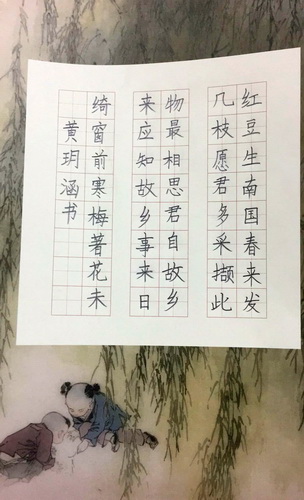 红豆生南国春来发
几枝愿君多采撷此
物最相思君自故乡
来应知故乡事来日
绮窗前寒梅著花未
黄玥涵书